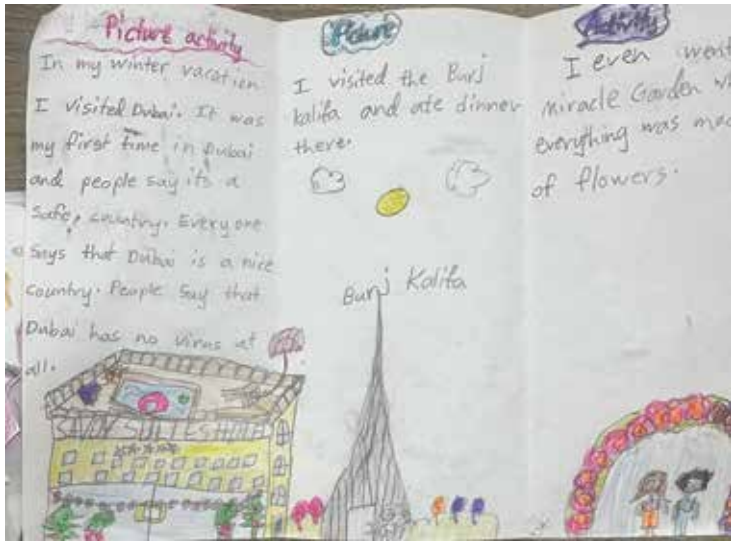 Picture activity
In my winter vacation
I visited Dubai. It was
my first time in Dubai
and people say its a
safe, country. Every one
says that Dubai is a nice
country. People say that
Dubai has no virus at
all.
Picture
I visited the Burj
kalifa and ate dinner
there.
Burj Kalifa
Activity
I even went
miracle Garden
everything was
of flowers.